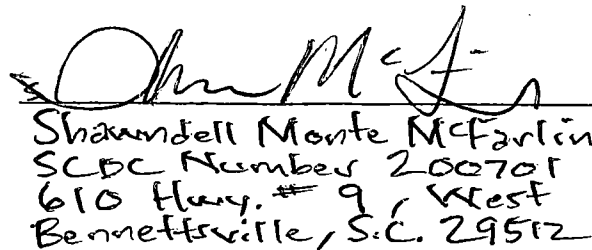 Shawndell Monte McFarlin
SCDC Number 200701
610 Hwy. # 9, West
Bennettsville, S.C. 29512